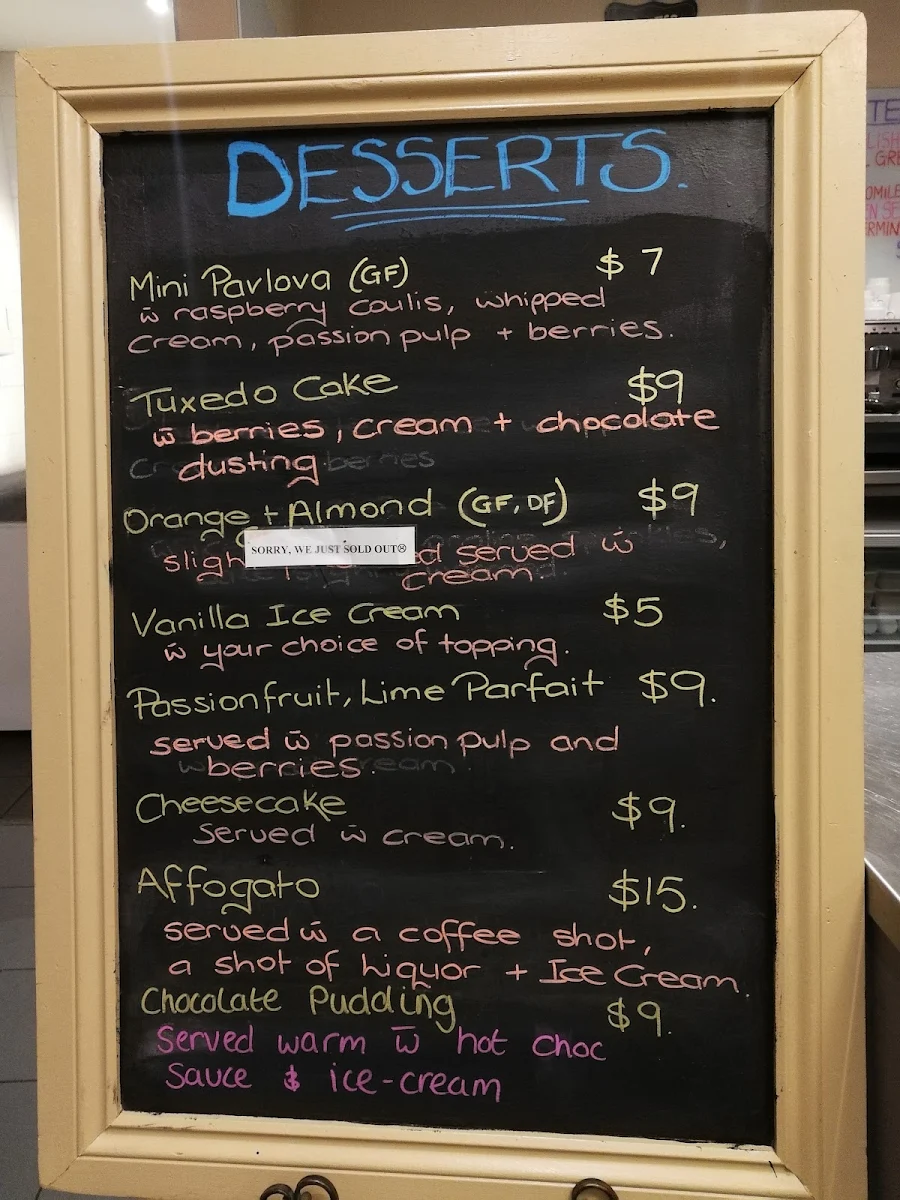 DESSERTS.
Mini Pavlova (GF) $7
w̄ raspberry coulis, whipped
cream, passion pulp + berries.
Tuxedo Cake $9
w̄ berries, cream + chocolate
dusting
Orange + Almond (GF, DF) $9
SORRY, WE JUST SOLD OUT☹
served w̄
cream.
Vanilla Ice Cream $5
w̄ your choice of topping.
Passionfruit, Lime Parfait $9.
served w̄ passion pulp and
berries.
Cheesecake $9.
Served w̄ cream.
Affogato $15.
served w̄ a coffee shot,
a shot of liquor + Ice Cream.
Chocolate Pudding $9.
Served warm w̄ hot choc
Sauce & ice-cream